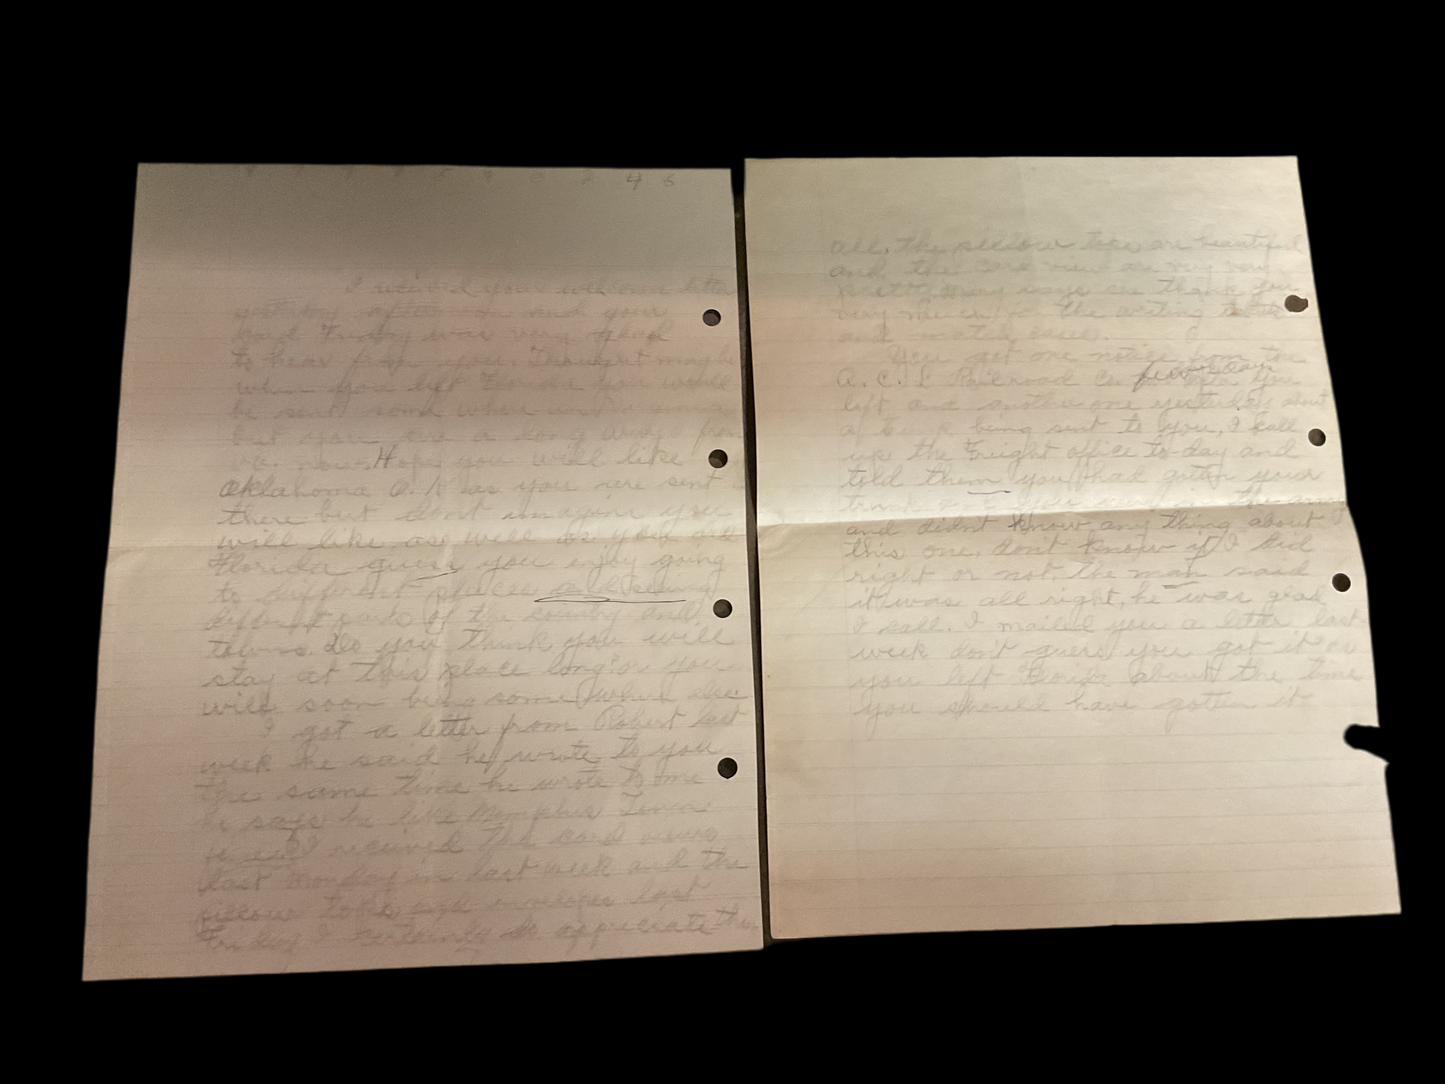 I received your welcome letter
yesterday after and your
card Friday was very glad
to hear from you. Thought maybe
when you left Florida you would
be sent some where
but you are a long ways from
va. now. Hope you will like
Oklahoma O. K as you were sent
there but don't imagine you
will like as well as you did
Florida guess you enjoy going
to different places and seeing
different parts of the country and
towns. Do you think you will
stay at this place long? or you
will soon be some where else
I got a letter from Robert last
week he said he wrote to you
the same time he wrote to me
he says he like Memphis Tenn
I received the card views
last Monday in last week and the
pillow tops and envelopes last
Friday I certainly do appreciate them
all. the pillow tops are beautiful
and the card view are very very
pretty many ways in thank you
very much for the writing
and match cases.
You got one notice from the
A. C. L Railroad Co. few days you
left and another one yesterday about
a trunk being sent to you, I call
up the Freight office to day and
told them you had gotten your
trunk
and didnt know any thing about
this one, don't know if I did
right or not. the man said
it was all right, he was glad
I call. I mailed you a letter last
week don't guess you got it as
you left Florida about the time
you should have gotten it